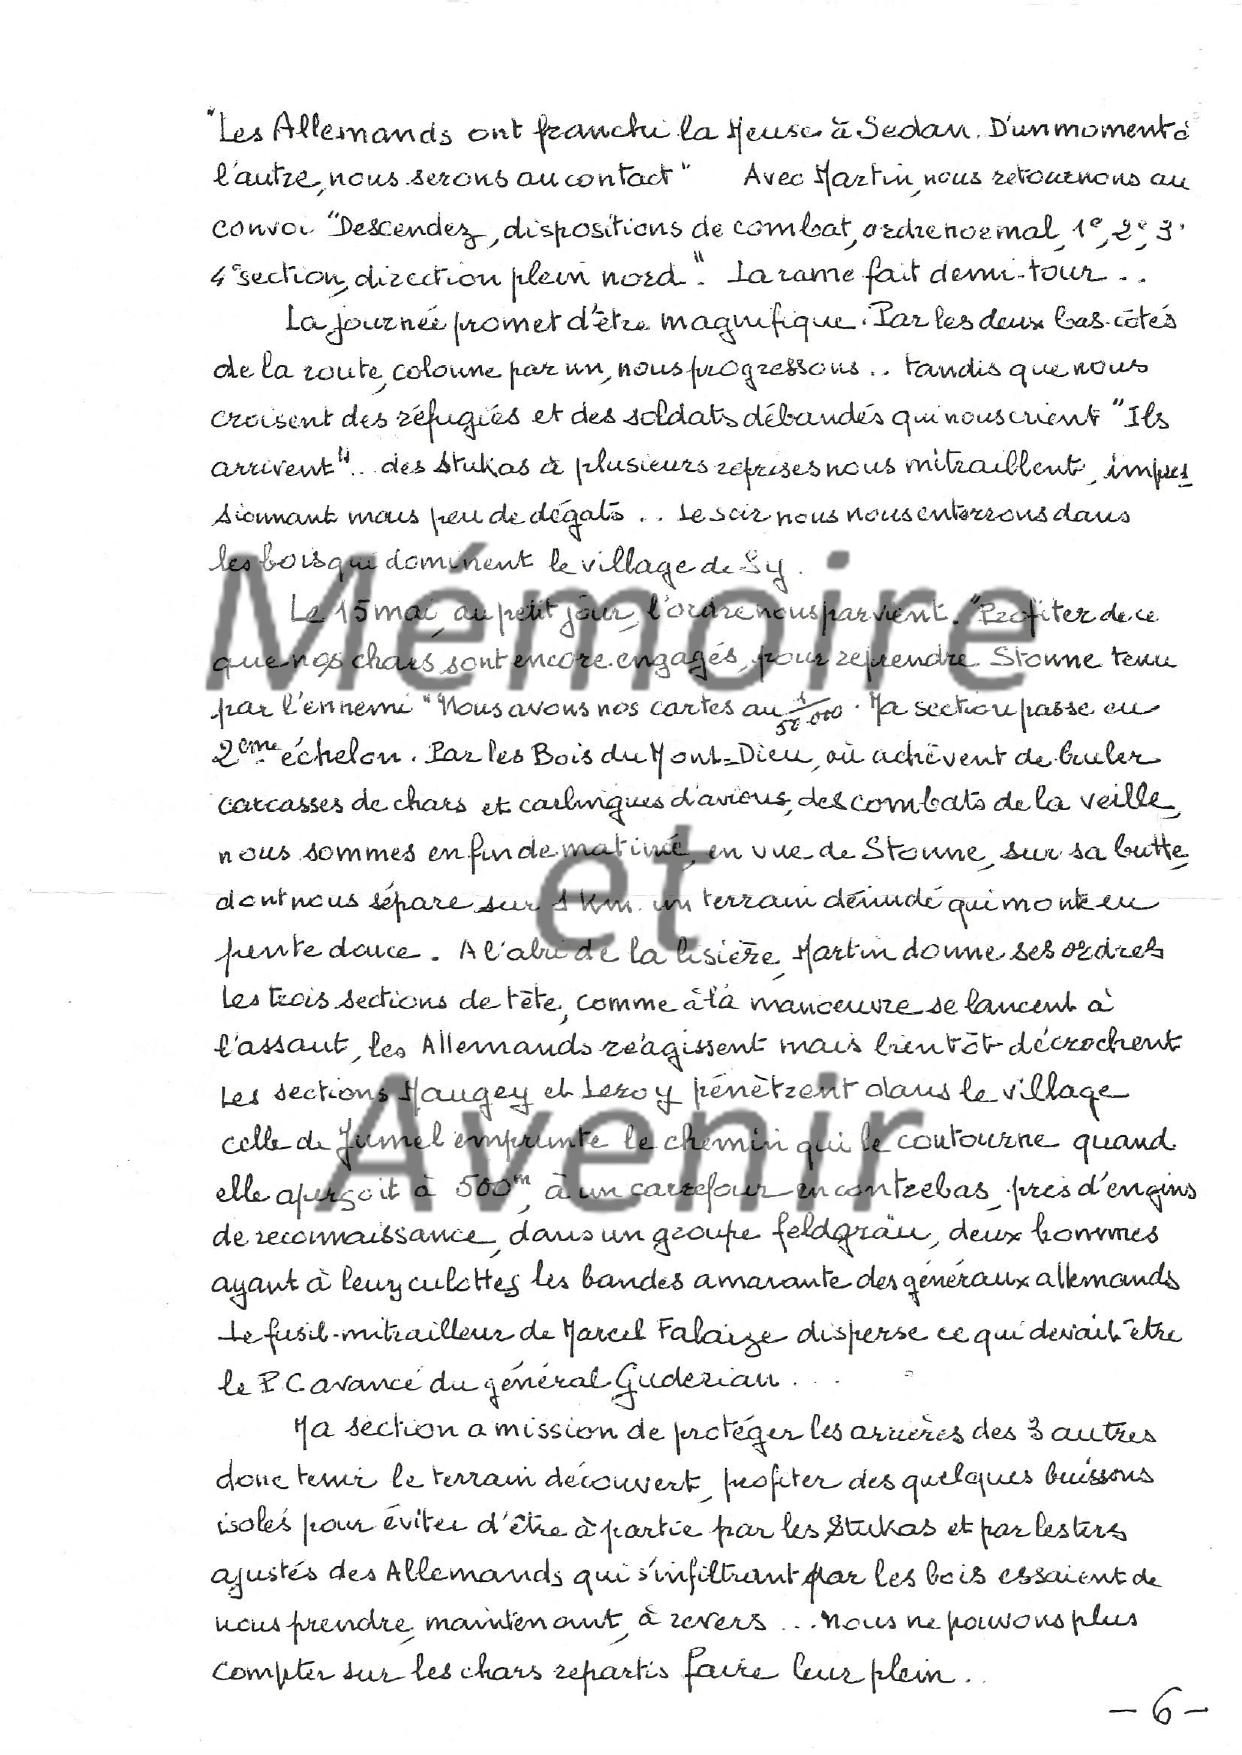 "Les Allemands ont franchi la Meuse à Sedan. D'un moment à
l'autre, nous serons au contact" Avec Martin, nous retournons au
convoi "Descendez, dispositions de combat, ordre normal, 1e, 2e, 3e
4e section, direction plein nord". La rame fait demi-tour...
La journée promet d'être magnifique. Par les deux bas-côtés
de la route, colonne par un, nous progressons.. tandis que nous
croisent des réfugiés et des soldats débandés qui nous crient "Ils
arrivent".. des Stukas à plusieurs reprises nous mitraillent, impres
sionnant mais peu de dégats... Le soir nous nous enterrons dans
les bois qui dominent le village de Sy.
Le 15 mai, au petit jour, l'ordre nous parvient. "Profiter de ce
que nos chars sont encore engagés, pour reprendre Stonne tenu
par l'ennemi" Nous avons nos cartes au 1/50 000. Ma section passe en
2ème échelon. Par les Bois du Mont-Dieu, où achèvent de bruler
carcasses de chars et carlingues d'avions, des combats de la veille,
nous sommes en fin de matiné, en vue de Stonne, sur sa butte,
dont nous sépare sur 1 Km. un terrain dénudé qui monte en
pente douce. A l'abri de la lisière, Martin donne ses ordres
Les trois sections de tête, comme à la manœuvre se lancent à
l'assaut, les Allemands réagissent mais bientôt décrochent
Les sections Maugey et Leroy pénètrent dans le village
celle de Jumel emprunte le chemin qui le contourne quand
elle aperçoit à 500m, à un carrefour en contrebas, près d'engins
de reconnaissance, dans un groupe feldgräu, deux hommes
ayant à leur culottes les bandes amarante des généraux allemands
Le fusil-mitrailleur de Marcel Falaize disperse ce qui devait être
le P.C avancé du général Guderian...
Ma section a mission de protéger les arrières des 3 autres
donc tenir le terrain découvert, profiter des quelques buissons
isolés pour éviter d'être à partie par les Stukas et par les tirs
ajustés des Allemands qui s'infiltrant par les bois essaient de
nous prendre, maintenant, à revers... Nous ne pouvons plus
compter sur les chars repartis faire leur plein..
- 6 -
Mémoire
et
Avenir